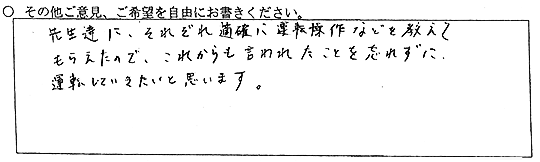 ○ その他ご意見、ご希望を自由にお書きください。
先生達に、それぞれ適確に運転操作などを教えて
もらえたので、これからも言われたことを忘れずに、
運転していきたいと思います。